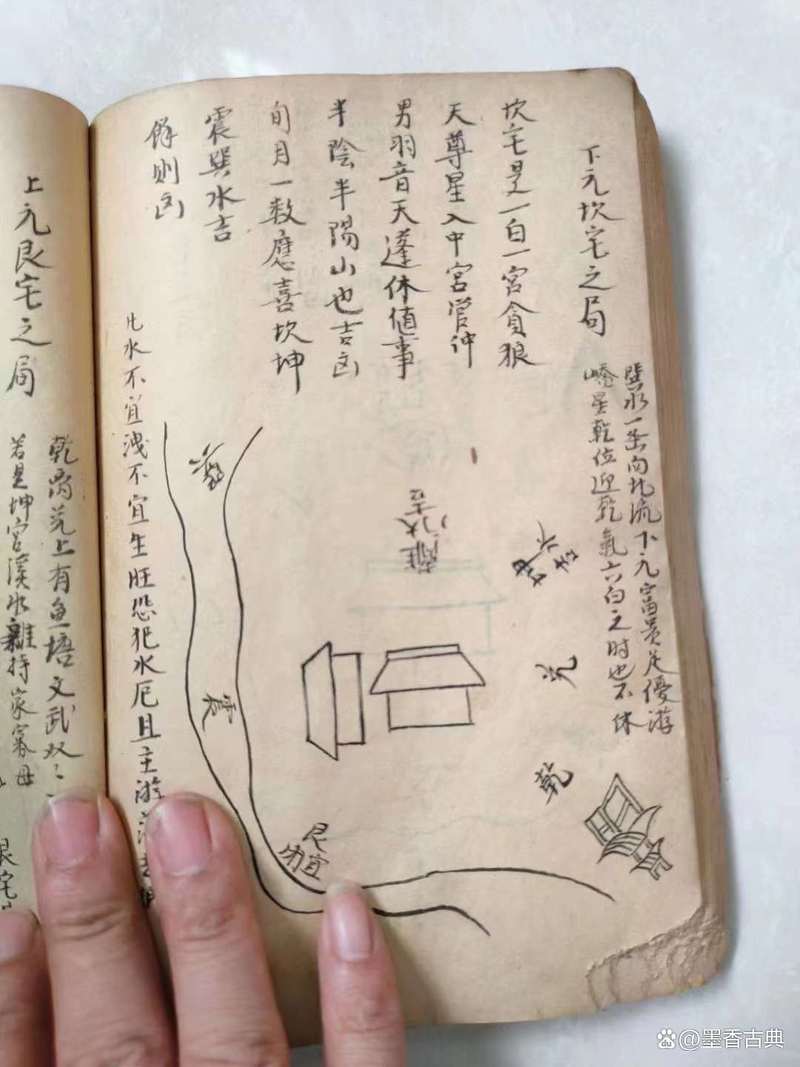 下元坎宅之局
巽水一条向北流下元富贵足優游
嶠星乾位迎乾氣六白之时也不休
坎宅是一白一宮貪狼
天尊星入中宮管仲
男羽音天蓬休値事
半陰半陽山也吉凶
旬月一数應喜坎坤
震巽水吉
餘則凶
巽
離
門大吉
坤
水吉
兌
乾
震
艮宜
凡水不宜洩不宜生旺恐犯水厄且主游
上元艮宅之局
乾兌上有魚塘文武双
若是坤宮溪水離持家寡母
艮宅
墨香古典